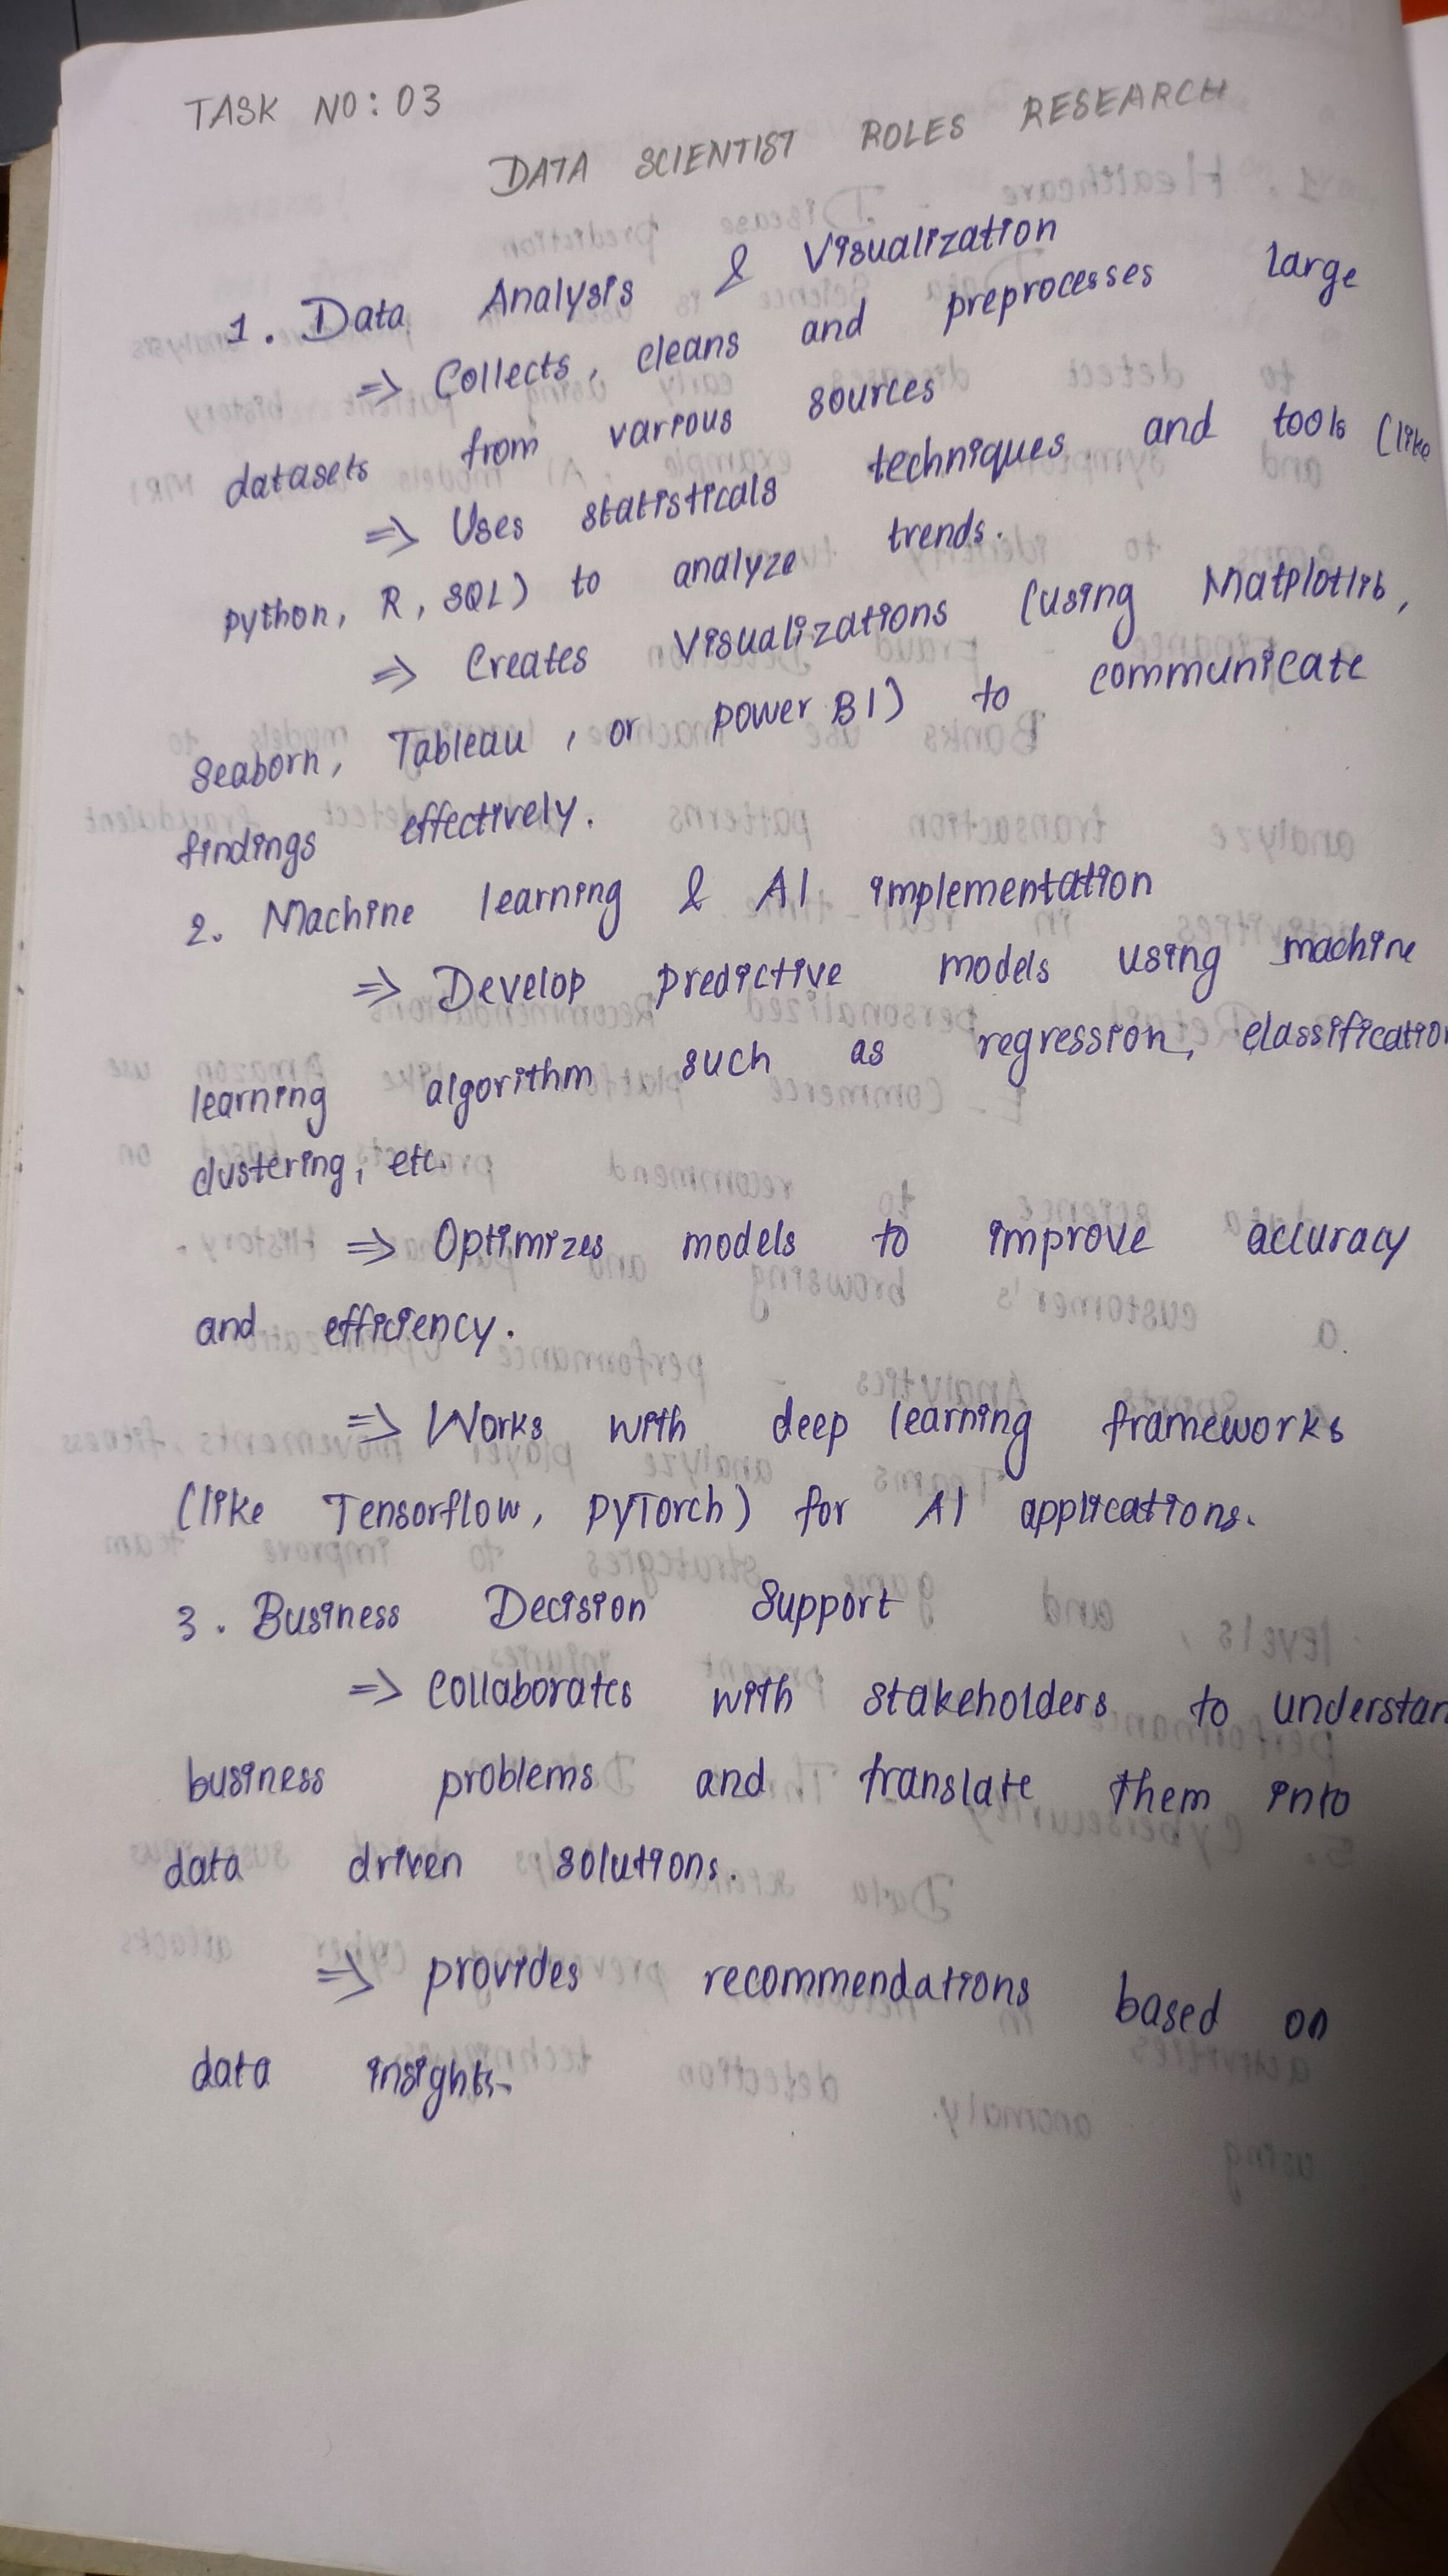 TASK NO: 03
DATA SCIENTIST ROLES RESEARCH
1. Data Analysis & Visualization
⇒ Collects, cleans and preprocesses large
datasets from various sources
⇒ Uses statisticals techniques and tools (like
python, R, SQL) to analyze trends.
⇒ Creates Visualizations (using Matplotlib,
Seaborn, Tableau, or power BI) to communicate
findings effectively.
2. Machine learning & AI implementation
⇒ Develop predictive models using machine
learning algorithm such as regression, classification
clustering, etc.
⇒ Optimizes models to improve accuracy
and efficiency.
⇒ Works with deep learning frameworks
(like Tensorflow, PyTorch) for AI applications.
3. Business Decision Support
⇒ Collaborates with stakeholders to understan
business problems and translate them into
data driven solutions.
⇒ provides recommendations based on
data insights.